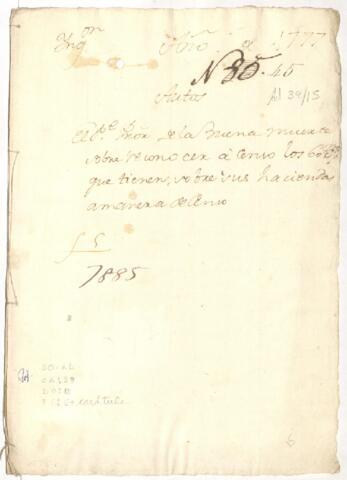 Ynq.on Año de 1777
N 80. 45
Autos
Al 39/15
El Pe Pror de la Buena muerte
sobre reconocer à Censo los 60
que tienen, sobre sus haciendas
amanera de Censo
f 5
1885
SO-AL
CA 139
DO
F 5 + carátula
6